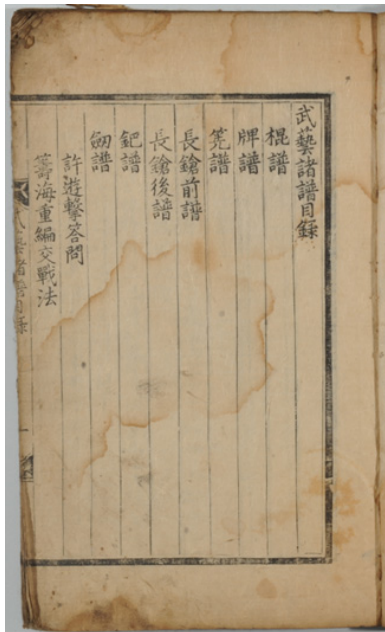 武藝諸譜目錄
棍譜
牌譜
筅譜
長鎗前譜
長鎗後譜
鈀譜
劒譜
許遊擊答問
籌海重編交戰法
武藝諸譜目錄